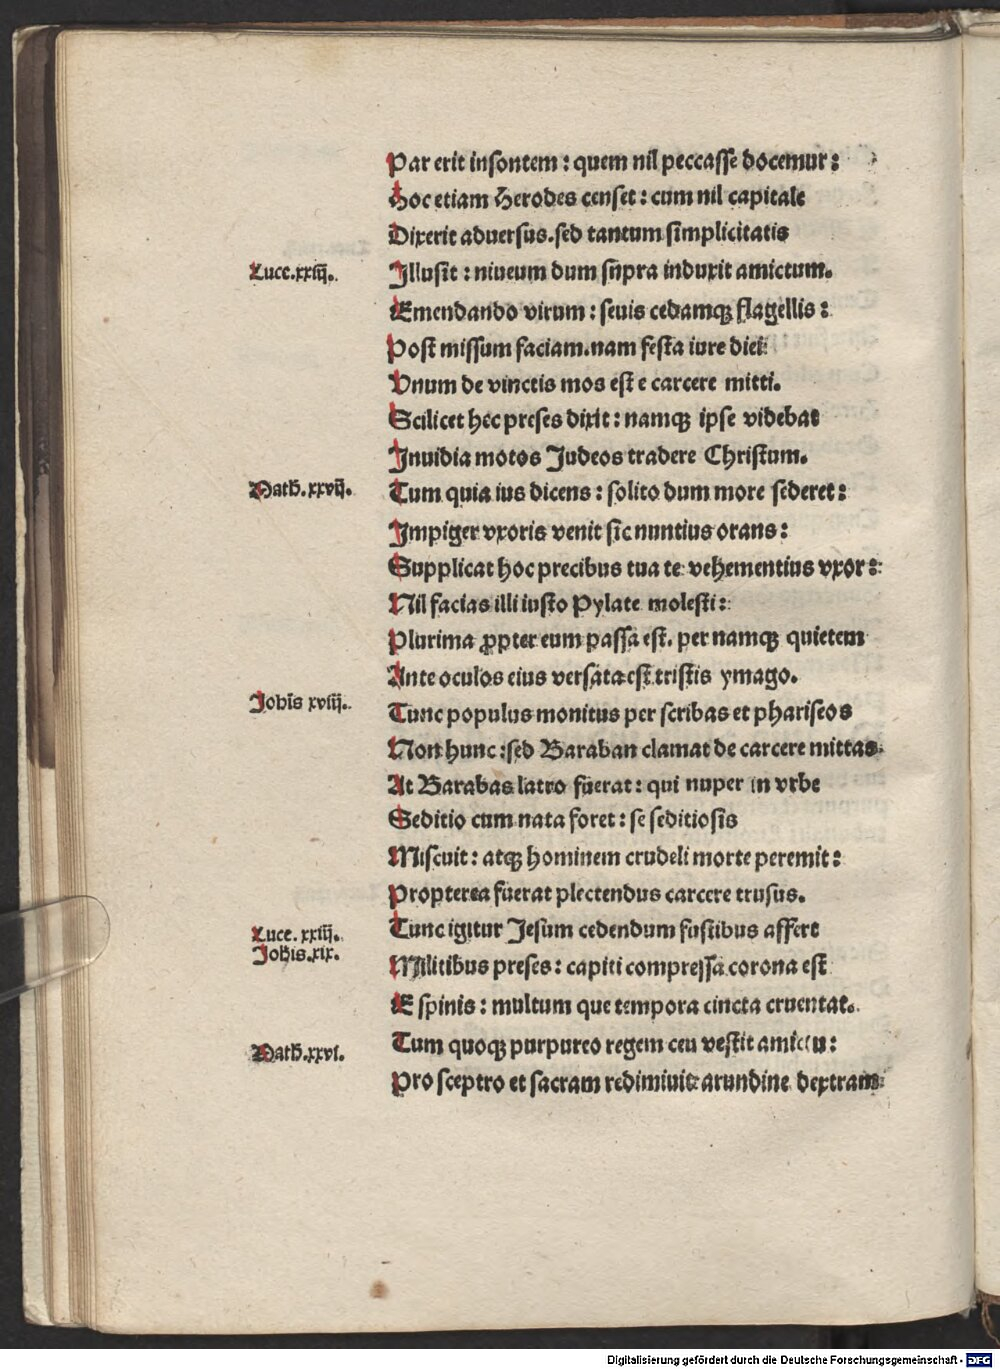 Par erit insontem : quem nil peccasse docemur :
Hoc etiam Herodes censet : cum nil capitale
Dixerit aduersus. sed tantum simplicitatis
Luce. xxiij.
Illusit : niueum dum supra induxit amictum.
Emendando virum : seuis cedamqꝫ flagellis :
Post missum faciam. nam festa iure diei
Unum de vinctis mos est e carcere mitti.
Scilicet hec preses dixit : namqꝫ ipse videbat
Inuidia motos Judeos tradere Christum.
Math. xxvij.
Tum quia ius dicens : solito dum more sederet :
Impiger vxoris venit sic nuntius orans :
Supplicat hoc precibus tua te vehementius vxor :
Nil facias illi iusto Pylate molesti :
Plurima ꝓpter eum passa est. per namqꝫ quietem
Ante oculos eius versata est tristis ymago.
Johis xviij.
Tunc populus monitus per scribas et phariseos
Non hunc : sed Baraban clamat de carcere mittas.
At Barabas latro fuerat : qui nuper in vrbe
Seditio cum nata foret : se seditiosis
Miscuit : atqꝫ hominem crudeli morte peremit :
Propterea fuerat plectendus carcere trusus.
Luce. xxiij.
Tunc igitur Jesum cedendum fustibus affert
Johis. xix.
Militibus preses : capiti compressa corona est
E spinis : multum que tempora cincta cruentat.
Math. xxvi.
Tum quoqꝫ purpureo regem ceu vestit amictu :
Pro sceptro et sacram redimiuit arundine dextram
Digitalisierung gefördert durch die Deutsche Forschungsgemeinschaft - DFG